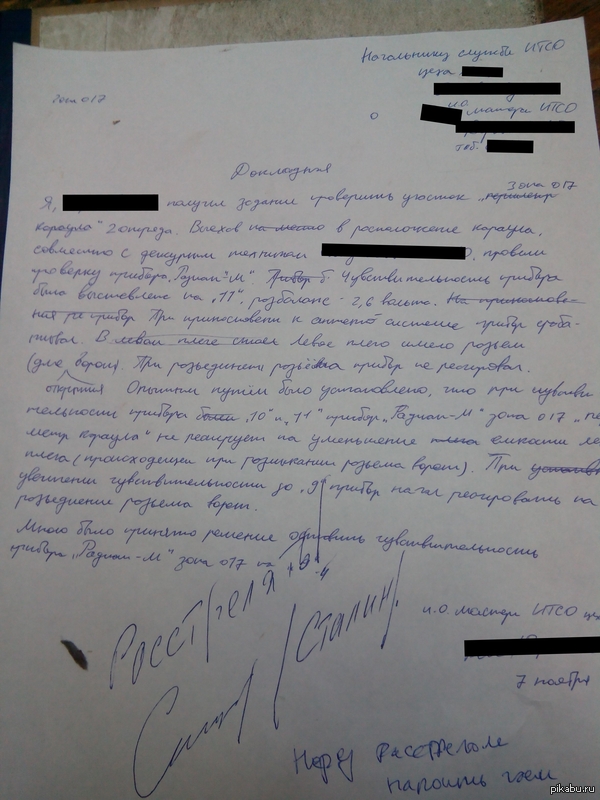 Начальнику службы ИТСО
цеха
Зона 017
и.о. мастера ИТСО
таб.
Докладная
Зона 017
Я, получил задание проверить участок „периметр
караула" 2 отряда. Выехав на место в расположение караула,
совместно с дежурным техником провели
проверку прибора „Радиан-М". Прибор б. Чувствительность прибора
была выставлена на „11", розбаланс - 2,6 вольта. На прикоснове-
ния ре прибор При прикосновени к антено системе прибор срaба-
тывал. В левом плече стоял левое плечо имело розьем
(для ворот). При розьединени розьёма прибор не реогировал.
открытия Опытным путём было установлено, что при чувстви
тельности прибора были „10" и „11" прибор „Радиан-М" зона 017 „пе
метр караула" не реогирует на уменьшение плеча емкости ле
плеча (происходящей при розмыкании розьема ворот). При установ
увеличении чувствительности до „9" прибор начал реогировать на
розьединение розьема ворот.
Мною было принято решение оставить чувствительность
прибора „Радиан-М" зона 017 на „9"
Расстрелять
/Сталин/
и.о. мастера ИТСО цех
7 ноября
Перед расстрелом
напоить чаем
pikabu.ru